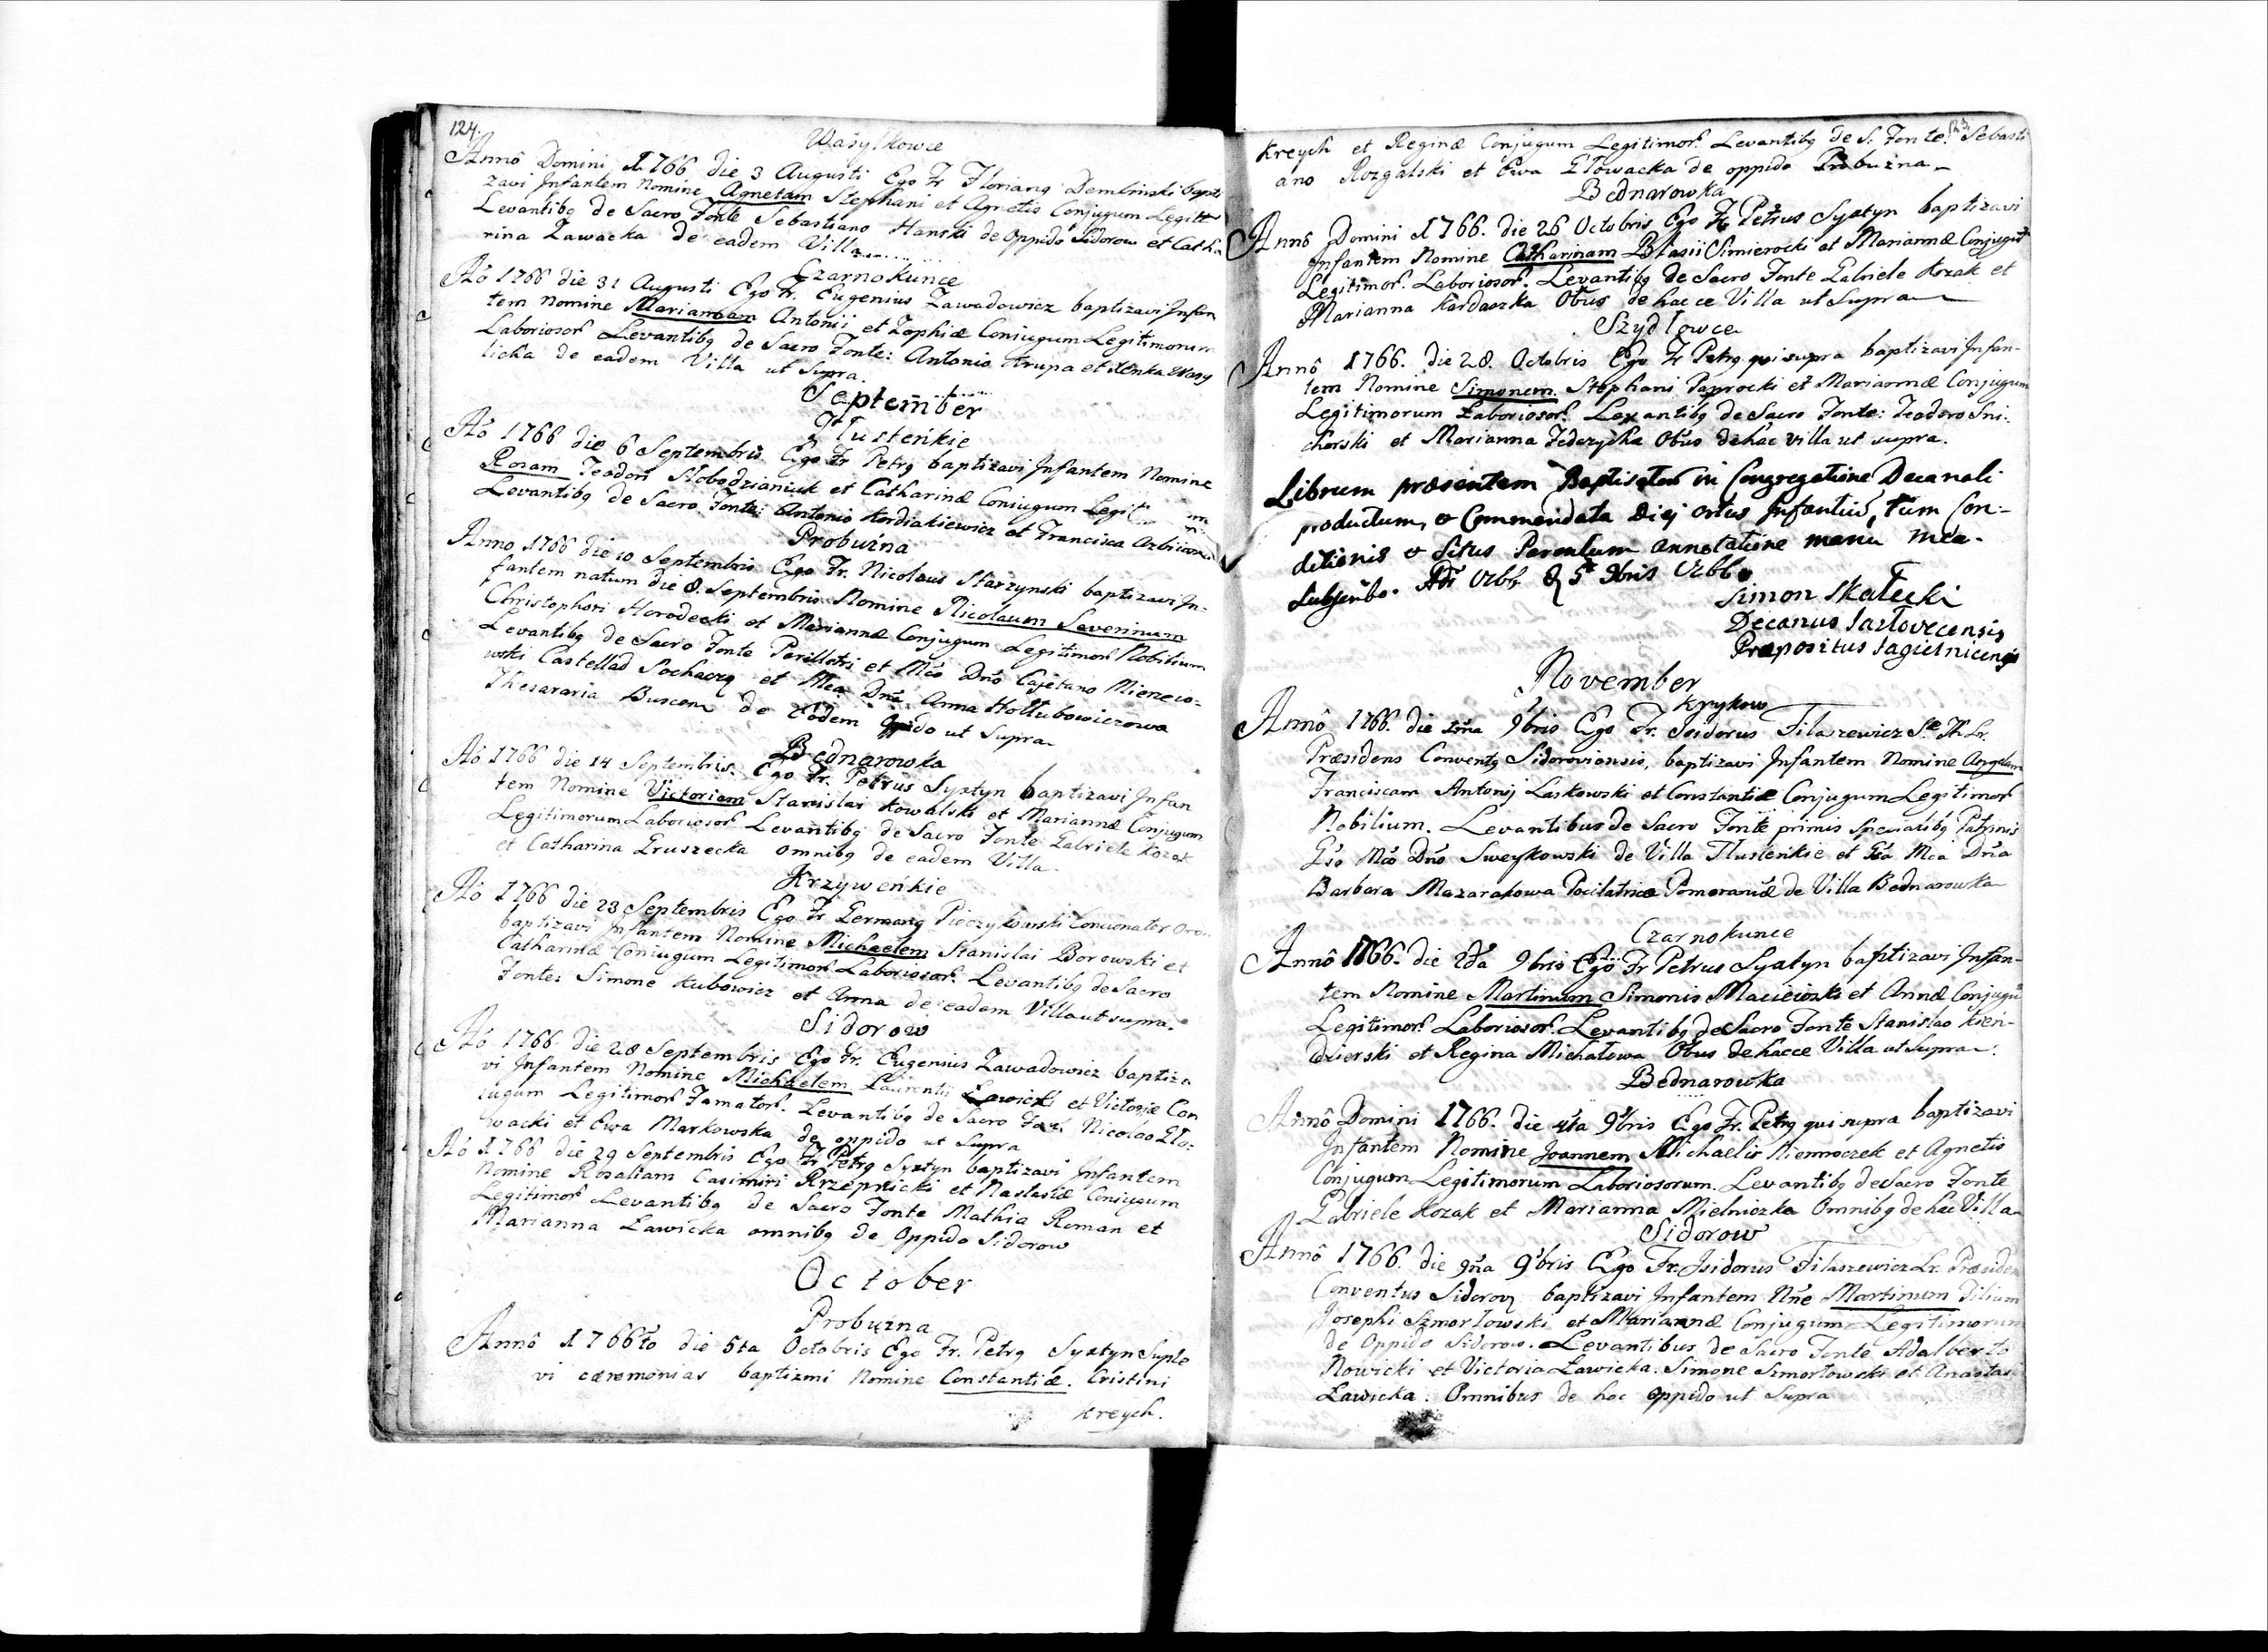 124.
Wasylkowce
Annô Domini 1766 die 3 Augusti Ego Fr Florianq Dembinski bapti
zavi Infantem Nomine Agnetam Stephani et Agnetis Conjugum Legitt
Levantibq de Sacro Fonte Sebastiano Hanski de Oppido Sidorow et Catha
rina Zawacka de eadem Villa
Czarnokunce
Aô 1766 die 31 Augusti Ego Fr. Eugenius Zawadowicz baptizavi Infan
tem Nomine Mariannam Antonii et Zophiæ Conjugum Legitimorum
Laboriosor Levantibq de Sacro Fonte: Antonio Krupa et Xenka Wasy
licka de eadem Villa ut Supra.
September
Tlusteńkie
Aô 1766 die 6 Septembris Ego Fr Petrq baptizavi Infantem Nomine
Rosam Teodori Slobodzianiuk et Catharinæ Conjugum Legit
Levantibq de Sacro Fonte: Antonio Kordiakiewicz et Francisca
Probużna
Anno 1766 die 10 Septembris Ego Fr. Nicolaus Starzynski baptizavi In-
fantem natum die 8. Septembris Nomine Nicolaum Severinum
Christophori Horodecki et Mariannæ Conjugum Legitimor Nobilium
Levantibq de Sacro Fonte Perillstri et Mco Dno Cajetano Mierzeio-
wski Castellad Sochacrq et Mca Dna Anna Hołłubowiczowa
Thesararia Buscen de eodem Oppido ut Supra
Bednarowka
Aô 1766 die 14 Septembris. Ego Fr. Petrus Syxtyn baptizavi Infan
tem Nomine Victoriam Stanislai Kowalski et Mariannæ Conjugum
Legitimorum Laboriosor Levantibq de Sacro Fonte Gabriele Kozak
et Catharina Gruszecka omnibq de eadem Villa
Krzyweńkie
Aô 1766 die 23 Septembris Ego Fr Germanq Pieczykowski Concionator Ord
baptizavi Infantem Nomine Michaelem Stanislai Borowski et
Catharinæ Conjugum Legitimor Laboriosor. Levantibq de Sacro
Fonte: Simone Kubowicz et Anna de eadem Villa ut supra.
Sidorow
Aô 1766 die 28 Septembris Ego Fr. Eugenius Zawadowicz baptiza
vi Infantem Nomine Michaelem Laurentii Ławicki et Victoriæ Con
jugum Legitimor Famator. Levantibq de Sacro Fonte Nicolao Gło-
wacki et Ewa Markowska de oppido ut Supra
Aô 1766 die 29 Septembris Ego Fr Petrq Syxtyn baptizavi Infantem
Nomine Rosaliam Casimiri Krzepnicki et Nastasiæ Conjugum
Legitimor Levantibq de Sacro Fonte Mathia Roman et
Marianna Ławicka omnibq de Oppido Sidorow
October
Probużna
Annô 1766to die 5ta Octobris Ego Fr. Petrq Syxtyn Suple
vi cæremonias baptizmi Nomine Constantiæ. Cristini
Kreych.
123.
Kreych et Reginæ Conjugum Legitimor. Levantibq de S. Fonte. Sebasti
ano Rozgalski et Ewa Głowacka de oppido Probużna
Bednarowka
Annô Domini 1766. die 26 Octobris Ego Fr Petrus Syxtyn baptizavi
Infantem Nomine Catharinam Blasii Simierocki et Mariannæ Conjugum
Legitimor. Laboriosor. Levantibq de Sacro Fonte Gabriele Kozak et
Marianna Kardaszka Obus de hac ce Villa ut Supra
Szydlowce
Annô 1766. die 28. Octobris Ego Fr Petrq qui supra baptizavi Infan-
tem Nomine Simonem Stephani Paprocki et Mariannæ Conjugum
Legitimorum Laboriosor. Levantibq de Sacro Fonte: Teodoro Sni-
chorski et Marianna Federycha Obus de hac villa ut supra.
Librum præsentem Baptisator in Congregatione Decanali
productum, & Commendata Diej ortus Infantiũ, tum Con-
ditionis & Situs Parentum annotatione manu mea
Subscribo.
Simon Skałecki
Decanus Jazłovecensis
Præpositus Jagielnicensis
November
Krykow
Annô 1766. die 1ma 9bris Ego Fr. Isidorus Filaszewicz S. Th. Lr.
Præsidens Conventq Sidoroviensis, baptizavi Infantem Nomine Angelam
Franciscam Antonij Laskowski et Constantiæ Conjugum Legitimor
Nobilium. Levantibus de Sacro Fonte primis Specialibq Patrinis
Gso Mco Dno Sweykowski de Villa Tlusteńkie et Gsa Mca Dna
Barbara Mazarakowa Pocilatrice Pomeraniæ de Villa Bednarowka
Czarnokunce
Annô 1766. die 2da 9bris Ego Fr Petrus Syxtyn baptizavi Infan-
tem Nomine Martinum Simonis Macieiozki et Annæ Conjugũ
Legitimor. Laboriosor. Levantibq de Sacro Fonte Stanislao Kień-
dzierski et Regina Michałowa Obus de hacce Villa ut Supra.
Bednarowka
Annô Domini 1766. die 4ta 9bris Ego Fr. Petrq qui supra baptizavi
Infantem Nomine Joannem Michaelis Niemoczek et Agnetis
Conjugum Legitimorum Laboriosorum. Levantibq de Sacro Fonte
Gabriele Kozak et Marianna Mielniczka Omnibq de hac Villa
Sidorow
Annô 1766. die 9na 9bris Ego Fr. Isidorus Filaszewicz Lr. Præsiden
Conventus Sidorov baptizavi Infantem Nne Martinum Filium
Josephi Szmorlowski et Mariannæ Conjugum Legitimorum
de Oppido Sidorow. Levantibus de Sacro Fonte Adalberto
Nowicki et Victoria Ławicka. Simone Szmorlowski et Anastas
Ławicka. Omnibus de hoc oppido ut Supra